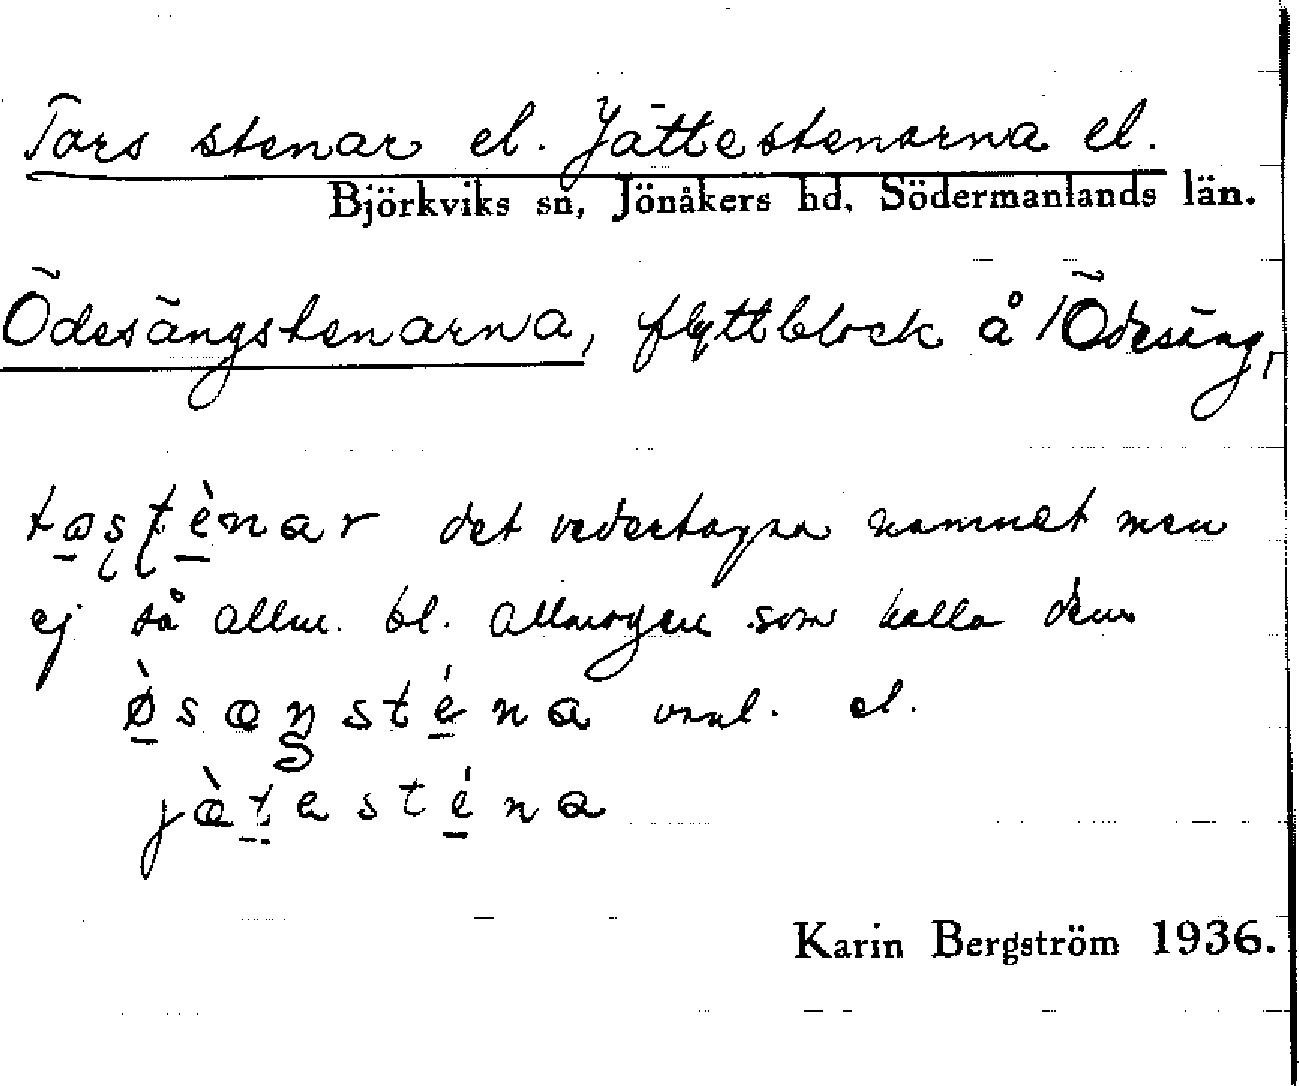 Tors stenar el. Jättestenarna el.
Björkviks sn, Jönåkers hd, Södermanlands län.
Ödesängstenarna, flyttblock å /Ödesäng,
tas̨ţènar det vedertagna namnet men
ej så allm. bl. allmogen som kalla dem
ø̀sæŋsténa vanl. el.
jæ̀testéna
Karin Bergström 1936.